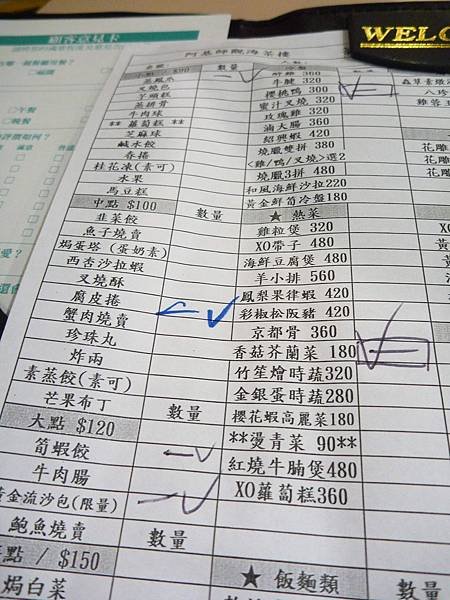 顧客意見卡
WELCO
阿基師觀海茶樓
小點 / $90
數量
蒸鳳爪
叉燒包
芋頭糕
蒸排骨
牛肉球
** 蘿蔔糕 **
芝麻球
鹹水餃
春捲
桂花凍(素可)
水果
馬豆糕
中點 $100
數量
韭菜餃
魚子燒賣
焗蛋塔 (蛋奶素)
西杏沙拉蝦
叉燒酥
腐皮捲
蟹肉燒賣
珍珠丸
炸兩
素蒸餃(素可)
芒果布丁
大點 $120
數量
筍蝦餃
牛肉腸
黃金流沙包(限量)
鮑魚燒賣
點 / $150
數量
焗白菜
醉雞 360
牛腱 320
櫻桃鴨 300
蜜汁叉燒 320
玫瑰雞 320
滷大腸 360
紹興蝦 420
燒臘雙拼 380
<雞/鴨/叉燒>選2
燒臘3拼 480
和風海鮮沙拉220
黃金鮮筍冷盤180
★ 熱菜
雞粒煲 320
XO帶子 480
海鮮豆腐煲 480
羊小排 560
鳳梨果律蝦 420
彩椒松阪豬 420
京都骨 360
香菇芥蘭菜 180
竹笙燴時蔬320
金銀蛋時蔬280
櫻花蝦高麗菜180
**燙青菜 90**
紅燒牛腩煲480
XO蘿蔔糕360
★ 飯麵類